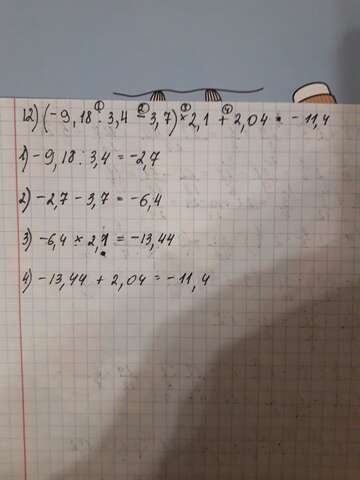 12) (-9,18 : 3,4 - 3,7) × 2,1 + 2,04 = -11,4
1) -9,18 : 3,4 = -2,7
2) -2,7 - 3,7 = -6,4
3) -6,4 × 2,1 = -13,44
4) -13,44 + 2,04 = -11,4